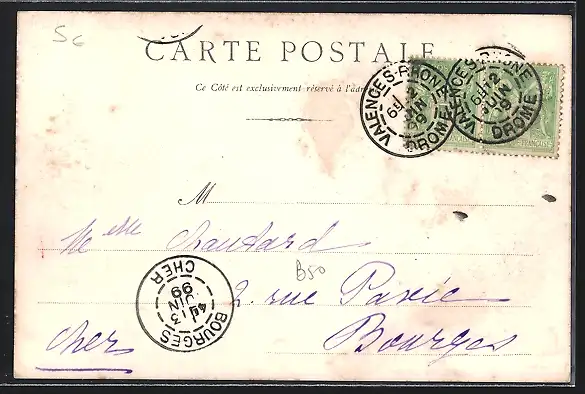 56
CARTE POSTALE
Ce Côté est exclusivement réservé à l'adr
VALENCE S-RHONE
12
JUIN
99
DROME
VALENCE S-RHONE
12
JUIN
DROME
FRANÇAISE
M
Melle Chautard
B50
2. rue Pavie
Bourges
Cher
BOURGES
3
JUIN
99
CHER